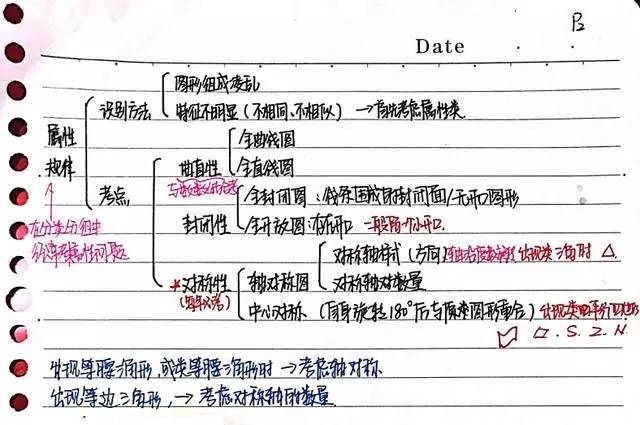 P2
Date
图形组成凌乱
识别方法
特征不明显(不相同、不相似) → 首先考虑属性类
属性
规律
全曲线图
曲直性
全直线图
考点
全封闭图:线条围成封闭面/无开口图形
封闭性
全开放图:有开口 一般留一个小开口.
在分类分组中
经常考属性问题
对称轴样式(方向) 出现类三角时 △
*对称性 轴对称图
对称轴对数量
中心对称(自身旋转180°后与原来图形重合) 出现类平行四边形
▱. S. Z. N.
出现等腰三角形,或类等腰三角形时 → 考虑轴对称
出现等边三角形, → 考虑对称轴的数量